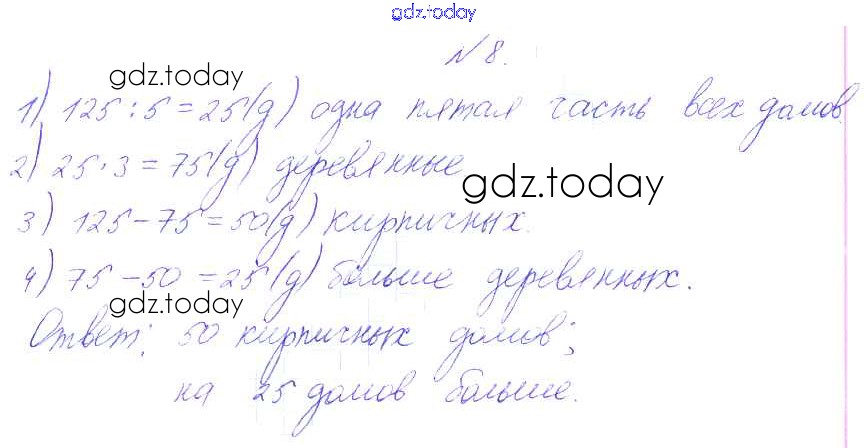 gdz.today
№ 8.
gdz.today
1) 125 : 5 = 25 (д) одна пятая часть всех домов.
2) 25 · 3 = 75 (д) деревянные
gdz.today
3) 125 - 75 = 50 (д) кирпичных.
4) 75 - 50 = 25 (д) больше деревянных.
gdz.today
Ответ: 50 кирпичных домов;
на 25 домов больше.